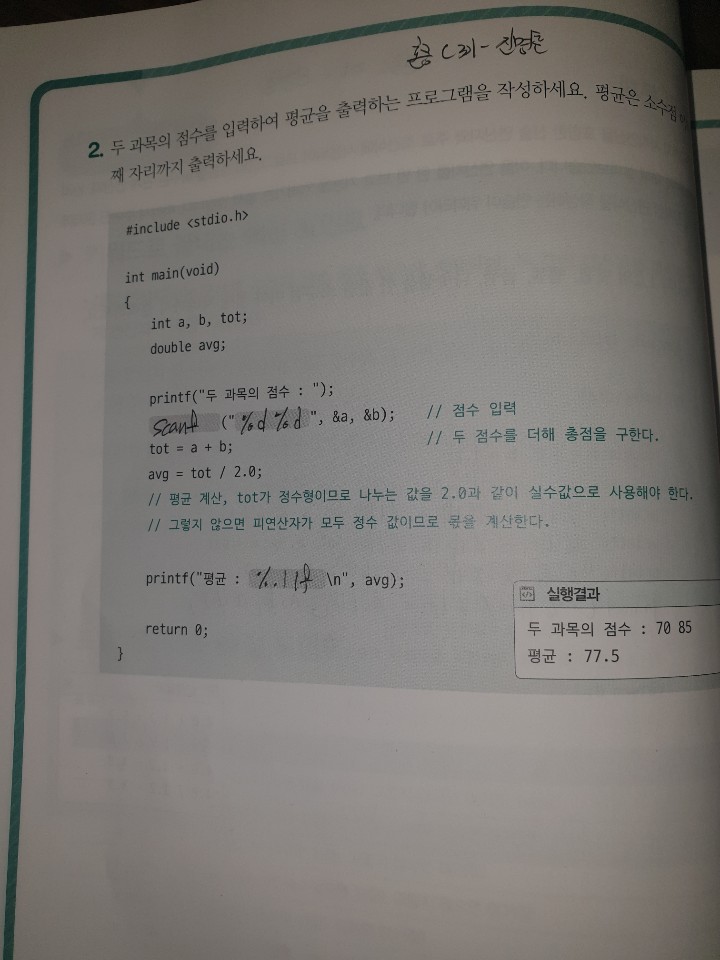 혼공 C 3기 - 진명훈
2. 두 과목의 점수를 입력하여 평균을 출력하는 프로그램을 작성하세요. 평균은 소수점
째 자리까지 출력하세요.
#include <stdio.h>
int main(void)
{
int a, b, tot;
double avg;
printf("두 과목의 점수 : ");
scanf ("%d %d", &a, &b); // 점수 입력
tot = a + b; // 두 점수를 더해 총점을 구한다.
avg = tot / 2.0;
// 평균 계산, tot가 정수형이므로 나누는 값을 2.0과 같이 실수값으로 사용해야 한다.
// 그렇지 않으면 피연산자가 모두 정수 값이므로 몫을 계산한다.
printf("평균 : %.1lf \n", avg);
return 0;
}
실행결과
두 과목의 점수 : 70 85
평균 : 77.5